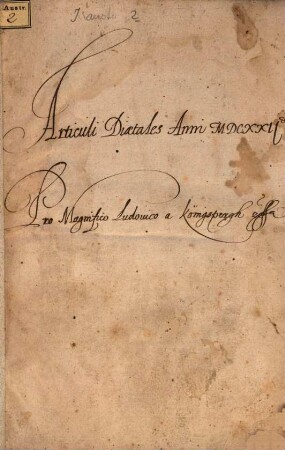 Austr.
2
2
Articuli Diætales Anni MDCXXII
Pro Magnifico Ludouico a Königspergh